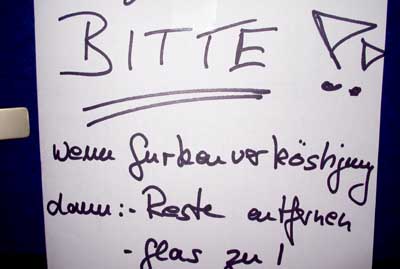 BITTE !!
wenn Gurkenverköstigung
dann: - Reste entfernen
- Glas zu !